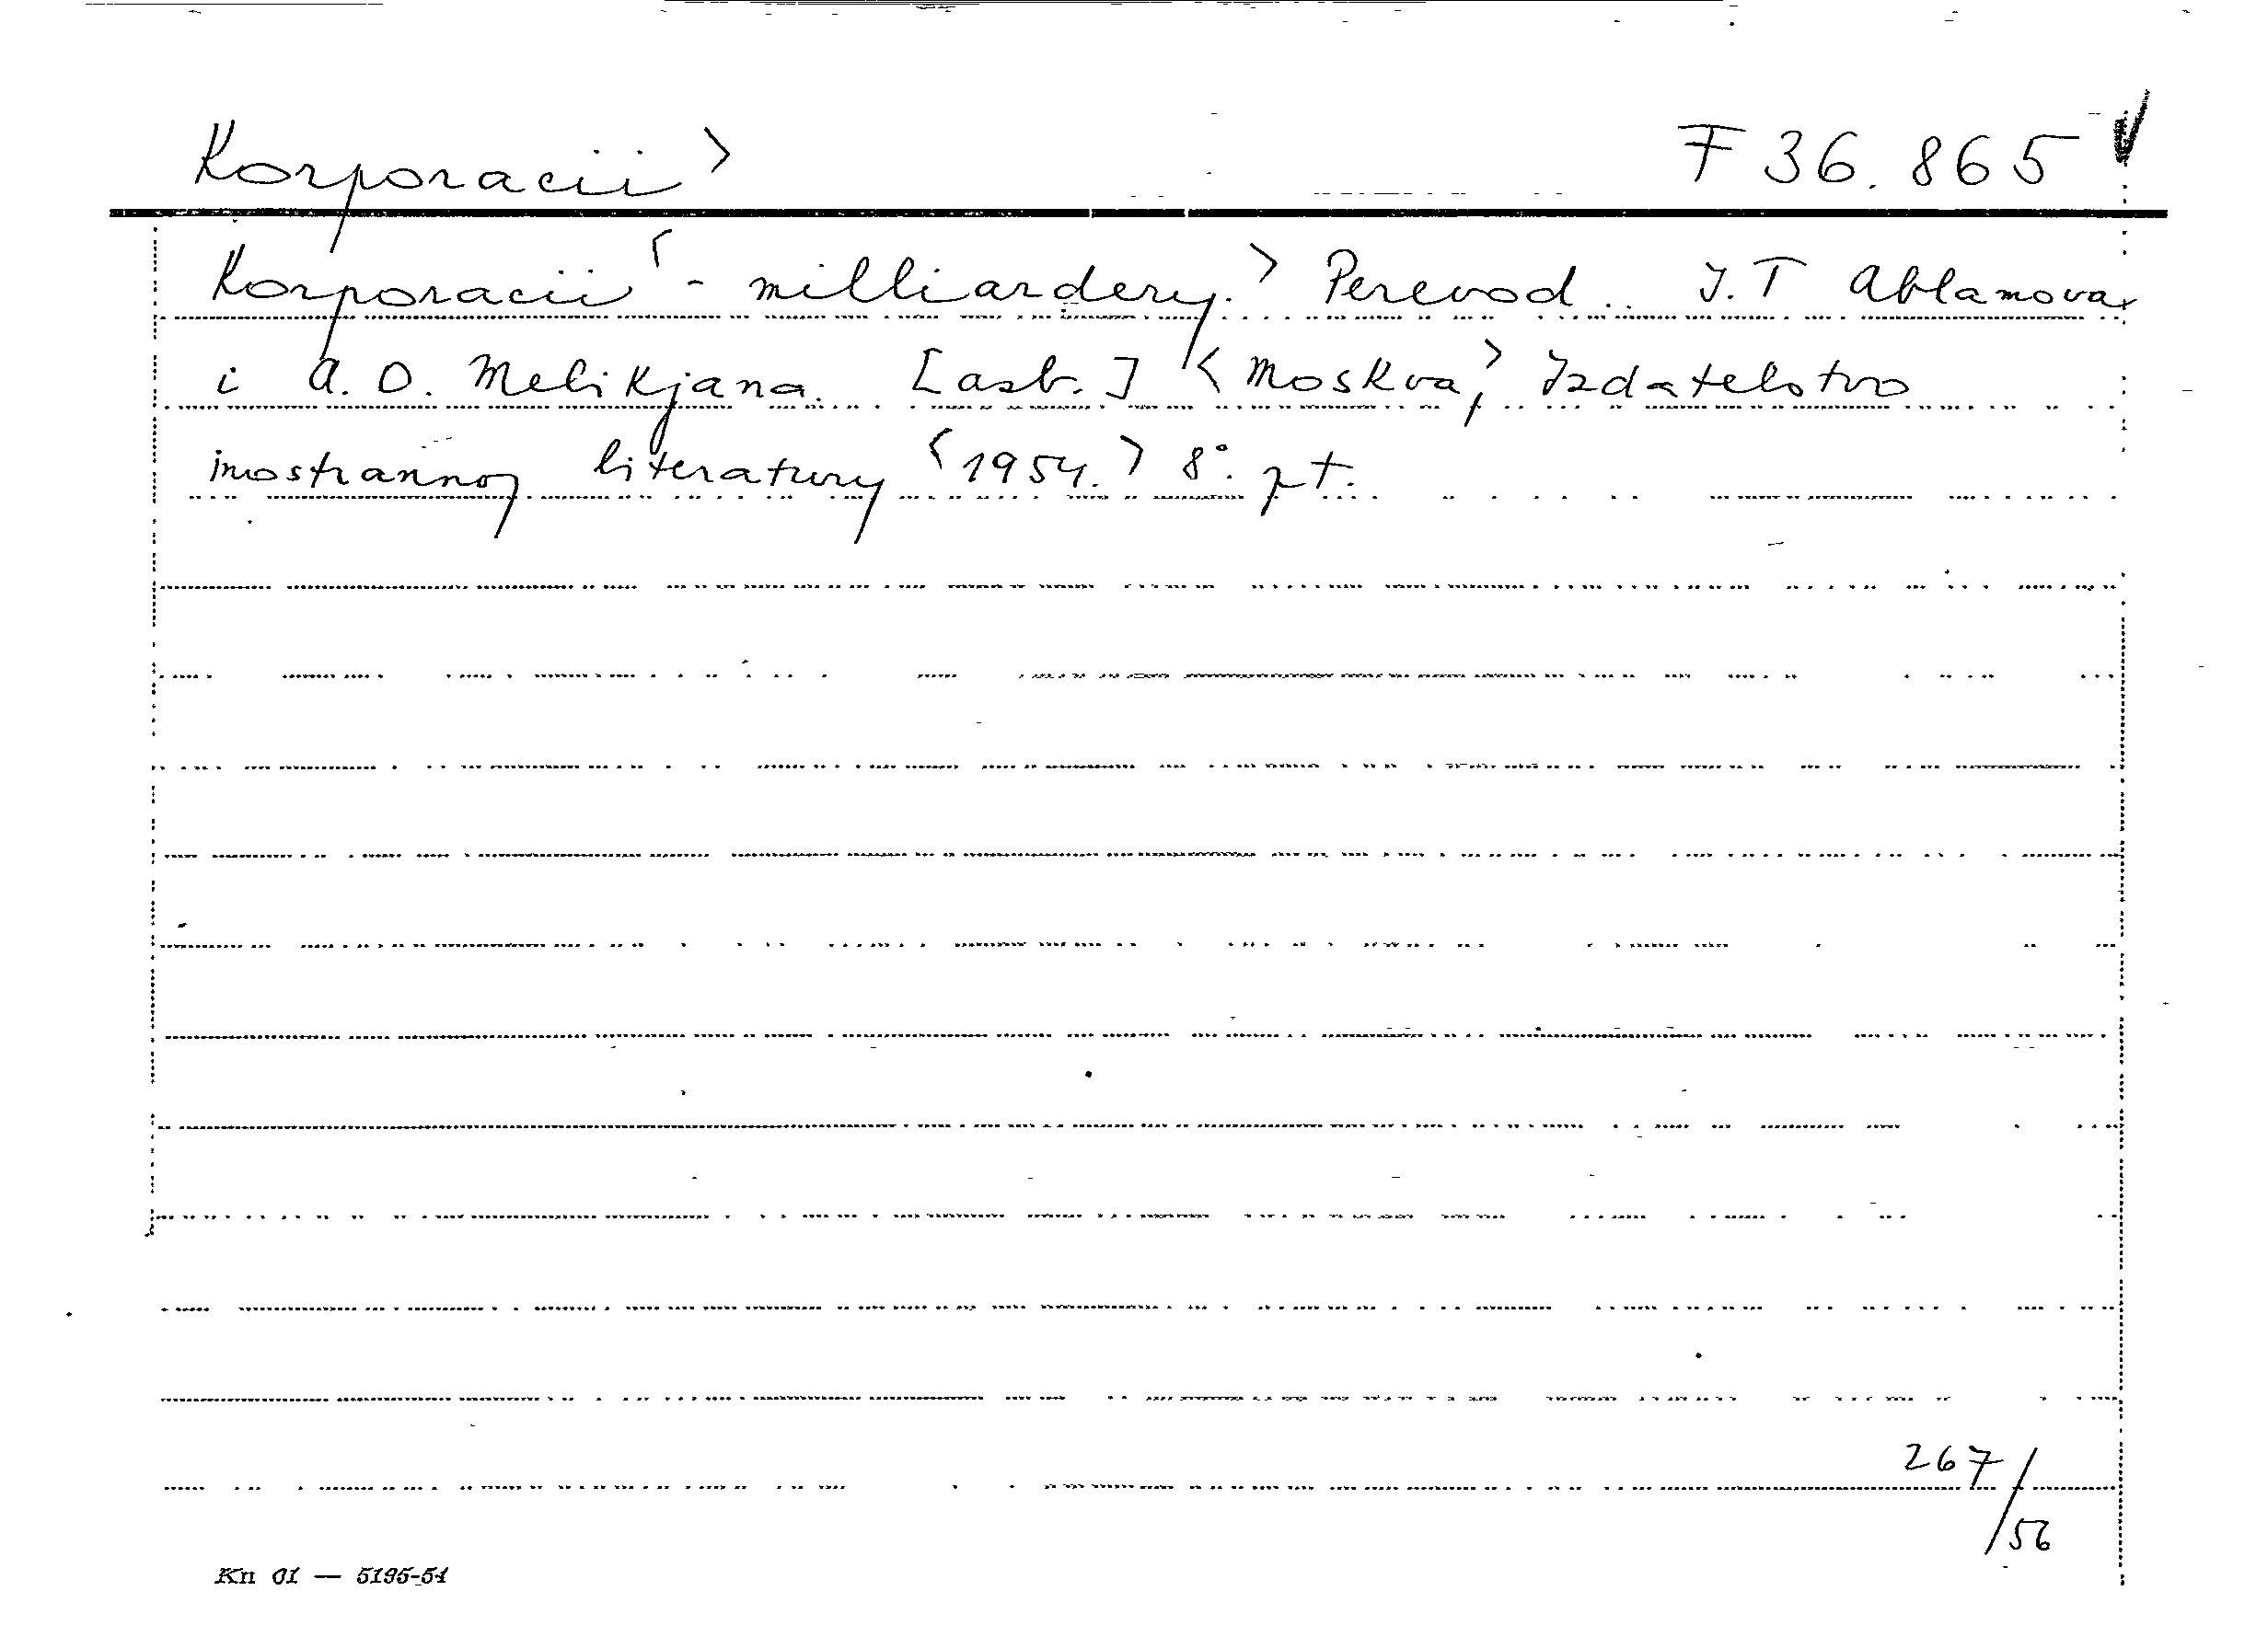 Korporacii > F 36.865
Korporacii < - milliardery. > Perevod .. I. T Ablamova
i A. O. Melikjana. [azb.] < Moskva, > Izdatelstvo
inostrannoj literatury < 1954. > 8°. pt.
267/56
Kn 01 — 5195-54